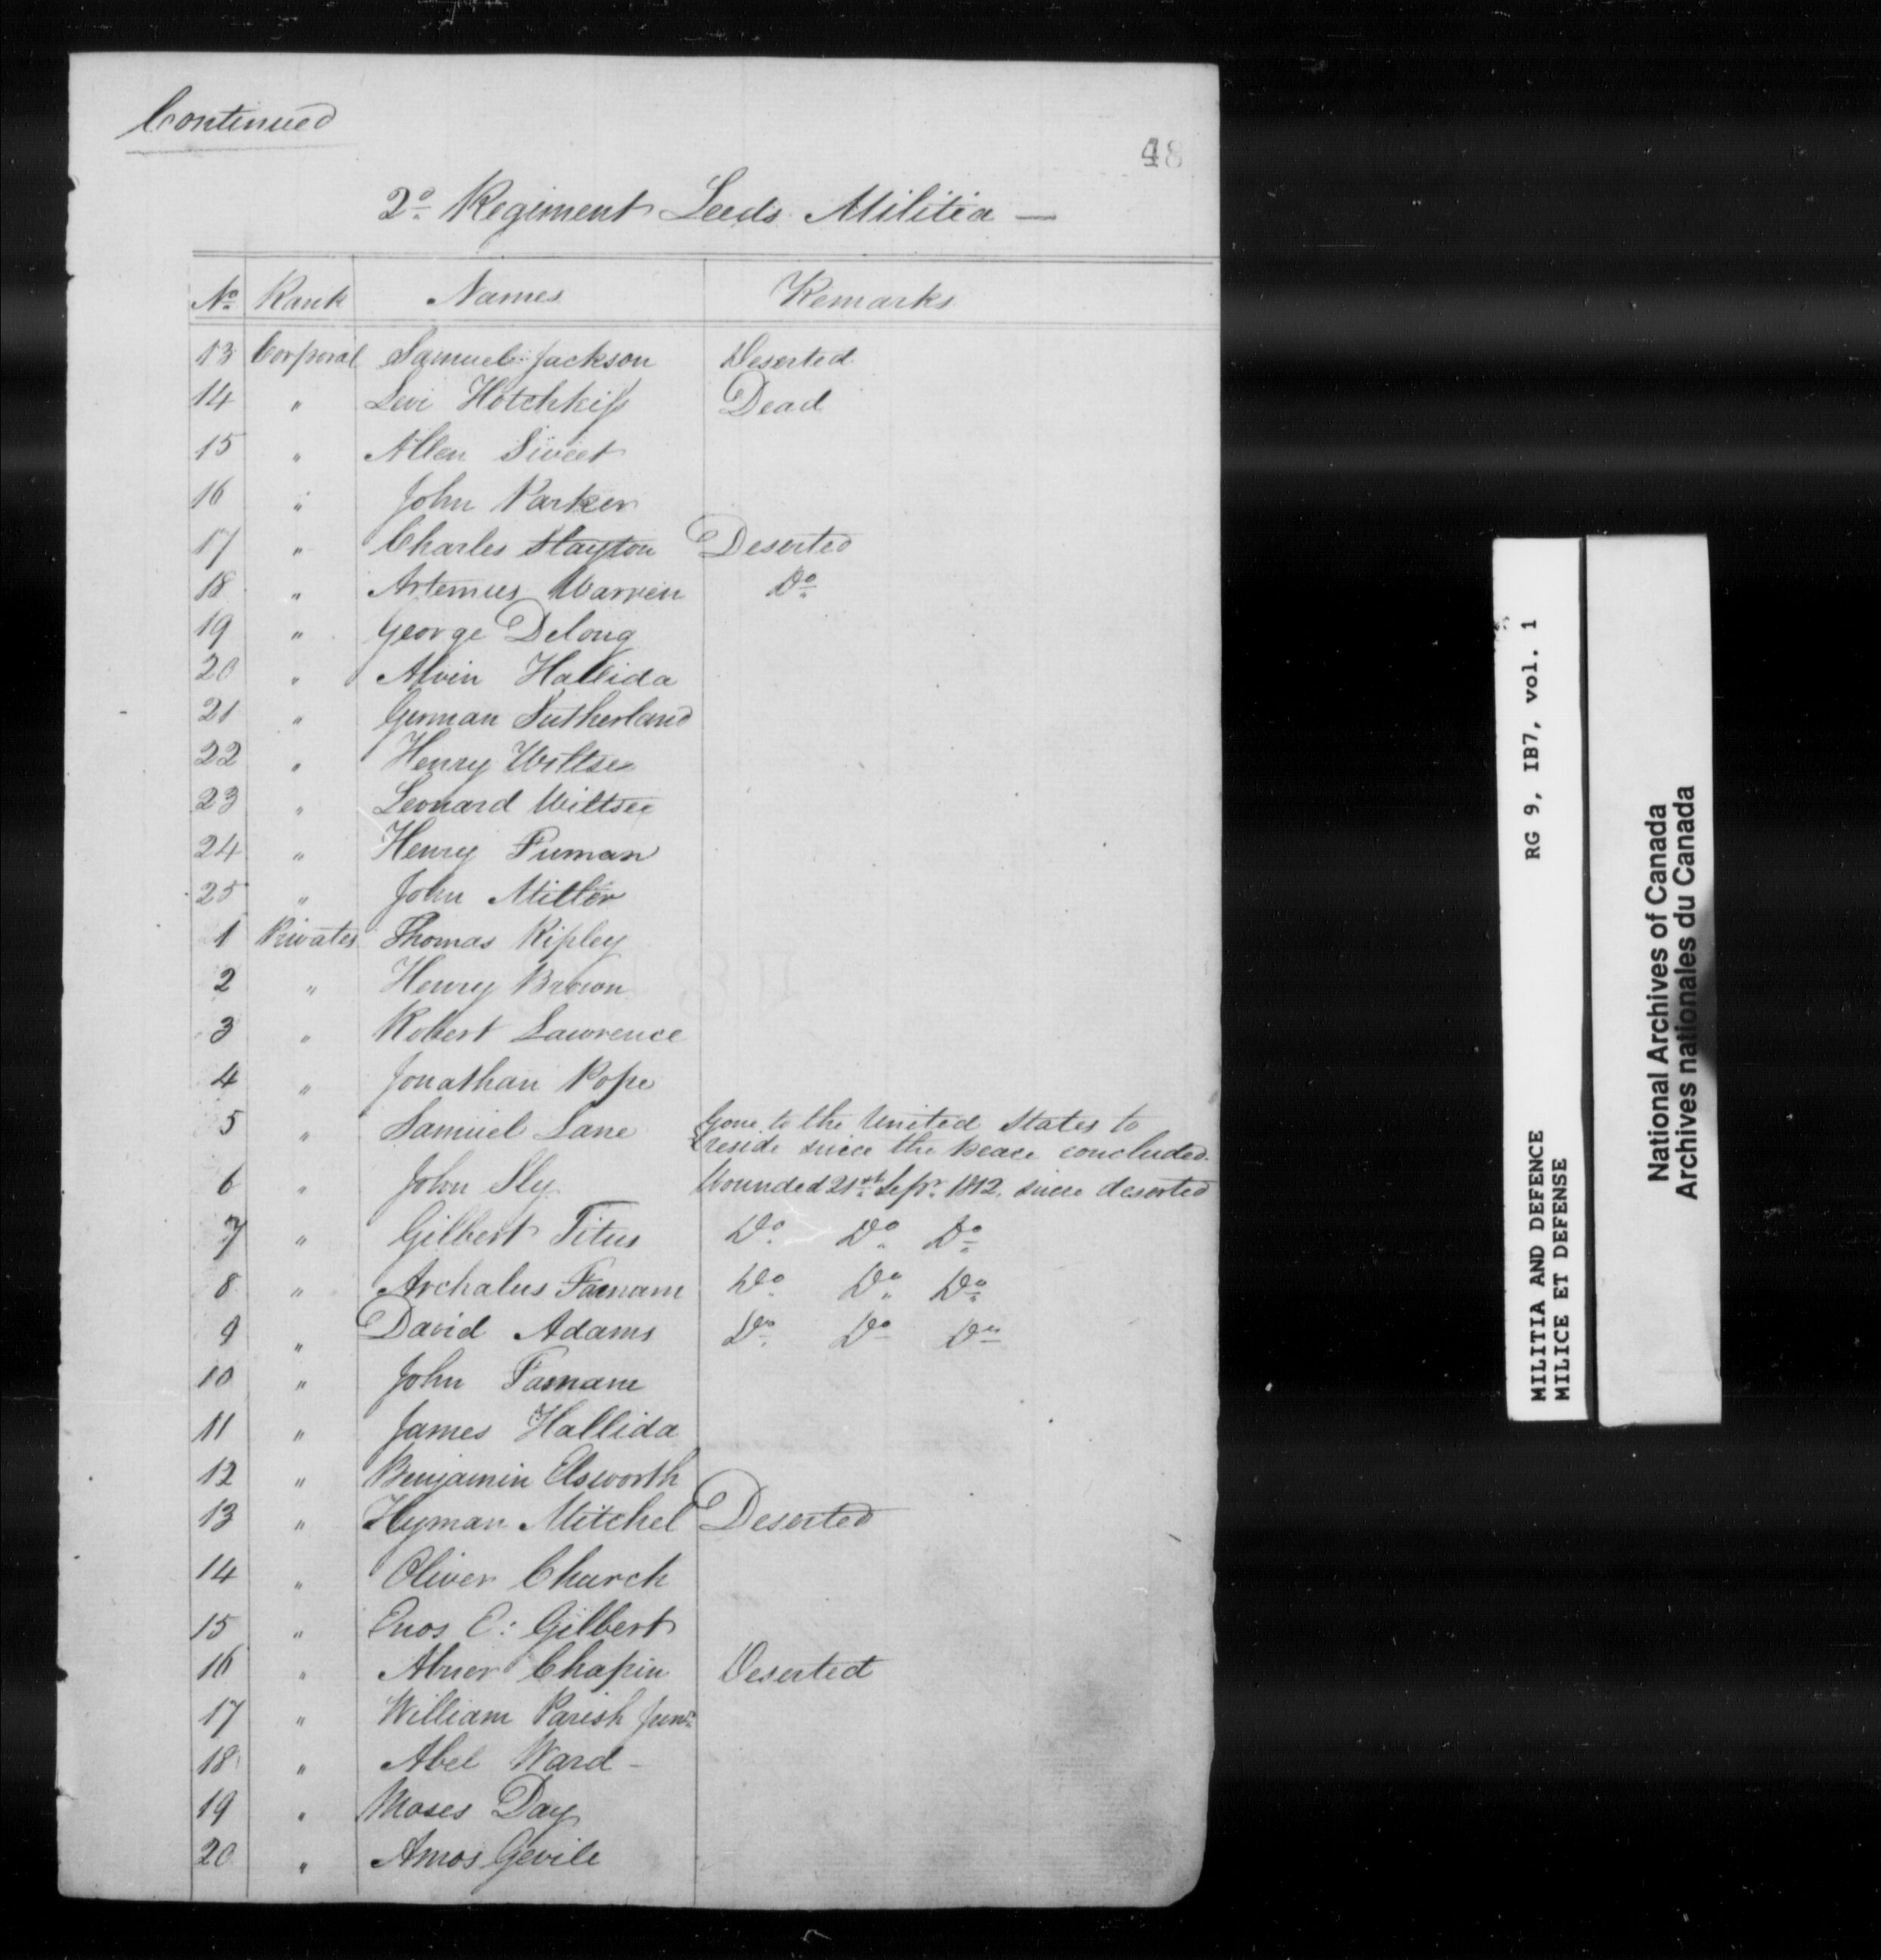 Continued
48
2º Regiment Leeds Militia —
Nº Rank Names Remarks
13 Corporal Samuel Jackson Deserted
14 " Levi Hotchkiſs Dead
15 " Allen Sweet
16 " John Parker
17 " Charles Slayton Deserted
18 " Artemus Warren Dº
19 " George Delong
20 " Alvin Hallida
21 " German Sutherland
22 " Henry Wiltse
23 " Leonard Wiltsee
24 " Henry Furman
25 " John Miller
1 Privates Thomas Ripley
2 " Henry Brown
3 " Robert Lawrence
4 " Jonathan Pope
5 " Samuel Lane Gone to the United States to
reside since the peace concluded.
6 " John Sly Wounded 21st Sepr. 1812, since deserted
7 " Gilbert Titus Dº Dº Dº
8 " Archalus Farnam Dº Dº Dº
9 " David Adams Dº Dº Dº
10 " John Farnam
11 " James Hallida
12 " Benjamin Elsworth
13 " Hyman Mitchel Deserted
14 " Oliver Church
15 " Enos C: Gilbert
16 " Abner Chapin Deserted
17 " William Parish Junr.
18 " Abel Ward -
19 " Moses Day
20 " Amos
MILITIA AND DEFENCE RG 9, IB7, vol. 1
MILICE ET DEFENSE
National Archives of Canada
Archives nationales du Canada